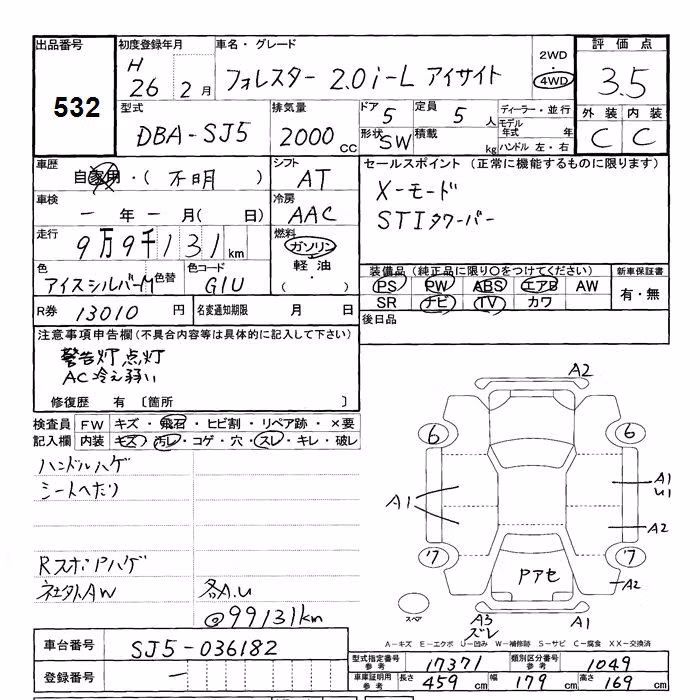 出品番号
532
初度登録年月
H 26年 2月
車名・グレード
フォレスター 2.0i-L アイサイト
2WD
4WD
評価点
3.5
外装 内装
C C
型式
DBA-SJ5
排気量
2000 CC
ドア 5
形状 SW
定員 5人
積載 kg
ディーラー・並行
モデル年式 年
ハンドル 左・右
車歴
自家用・( 不明 )
シフト
AT
セールスポイント (正常に機能するものに限ります)
X-モード
STIタワーバー
車検
ー 年 ー 月( 日)
冷房
AAC
走行
9万9千131km
燃料
ガソリン
軽油
( )
色
アイスシルバーM
色替
色コード
G1U
装備品 (純正品に限り〇をつけてください)
PS PW ABS エアB AW
SR ナビ TV カワ
新車保証書
有・無
R券 13010 円
名変通知期限 月 日
後日品
注意事項申告欄 (不具合内容等は具体的に記入して下さい)
警告灯点灯
AC冷え弱い
修復歴 有 〔箇所 〕
検査員記入欄
FW キズ・飛石・ヒビ割・リペア跡・×要
内装 キズ・汚レ・コゲ・穴・スレ・キレ・破レ
ハンドルハゲ
シートへたり
RスポPハゲ
社外AW
各A.U
@99131km
A2
6 6
A1
A1
U1
A2
7 7
Pアセ
A2
スペア
A3
ズレ
A1
A-キズ E-エクボ U-凹み W-補修跡 S-サビ C-腐食 XX-交換済
車台番号
SJ5-036182
登録番号
ー
型式指定番号 参考 17371
類別区分番号 参考 1049
車庫証明用 参考 長さ 459 cm 幅 179 cm 高さ 169 cm